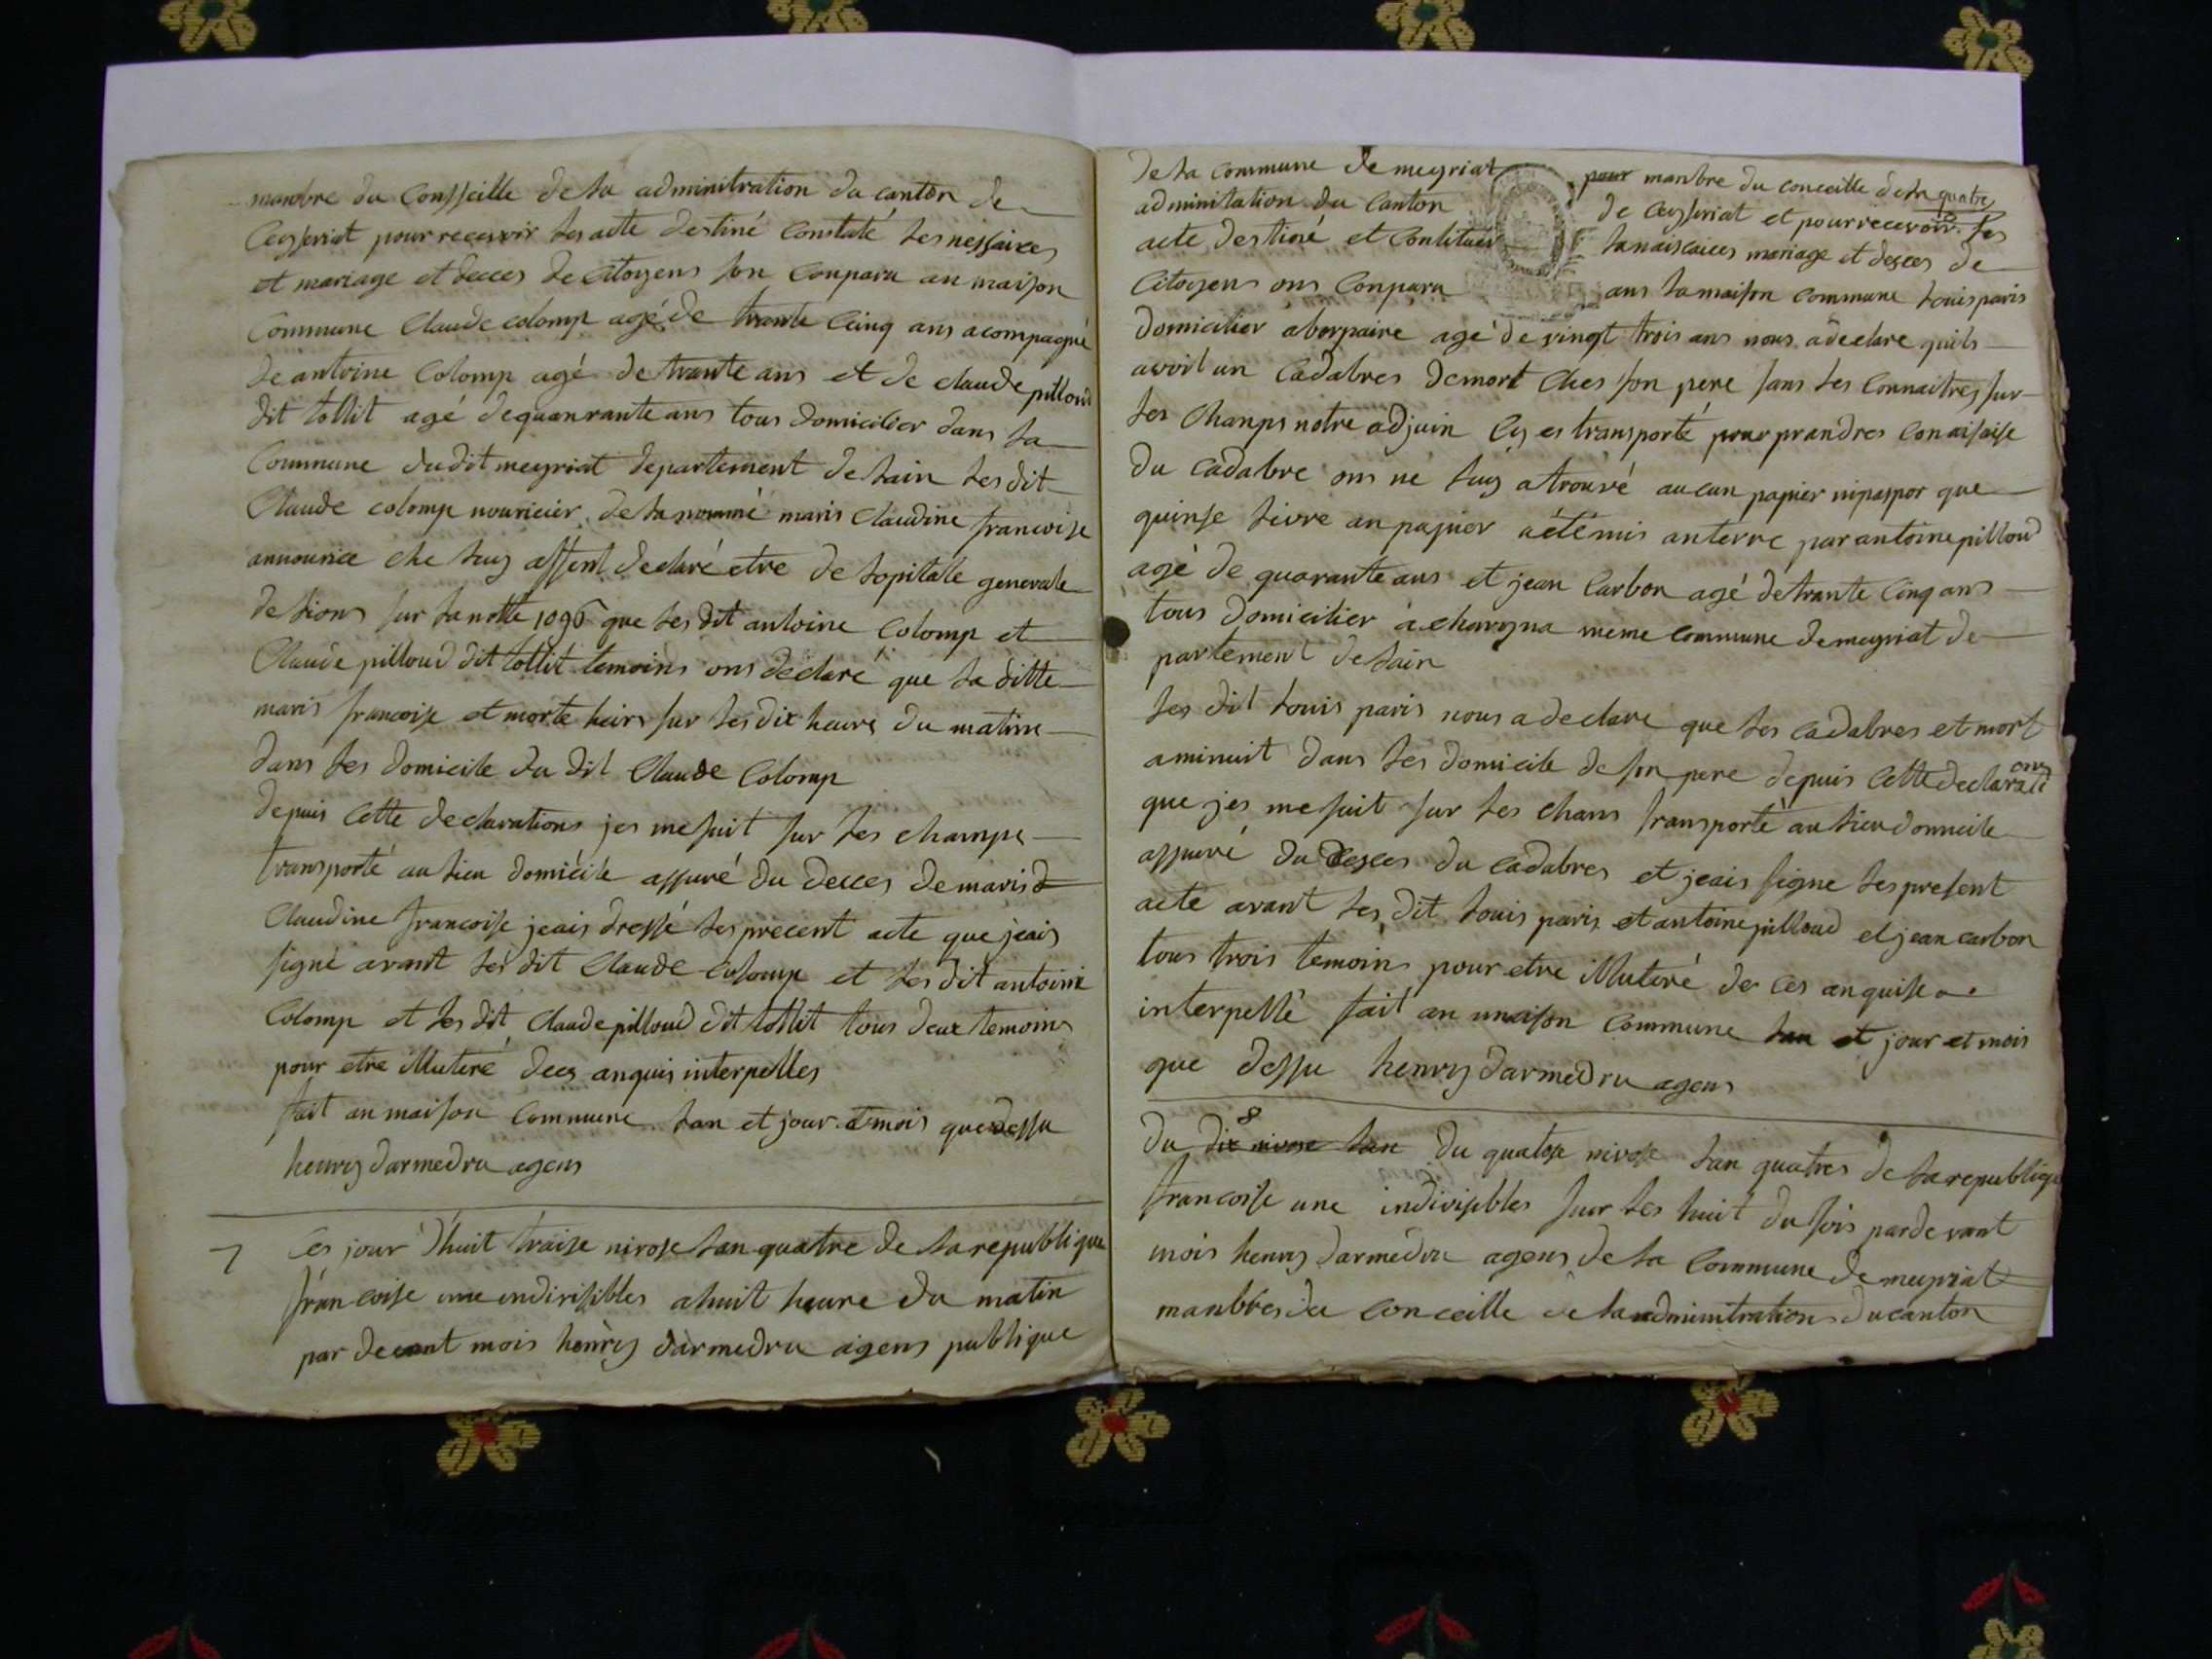 manbre du Consseille de la adminitration du canton de
Ceysseriat pour recevoir les acte destiné Constaté les nessaixes
et mariage et decces de citoyens son Conparu au maison
Commune Claude colomp agé de trante Cinq ans acompagné
de antoine Colomp agé de trante ans et de claude pilloud
dit tollit agé de quanrante ans tous domicilier dans la
Commune dudit meyriat departement de lain les dit
Claude colomp nouricier de la nommé maris Claudine francoise
annourice che luy assent declaré etre de lopitale generale
de lions sur la notte 1096 que les dit antoine Colomp et
Claude pilloud dit tollit temoins ons déclaré que la ditte
maris francoise et morte heirs sur les dix heures du matins
dans les domicile du dit Claude Colomp
depuis Cette declarations jes me suit sur les champs
transporté au lieu domicile assuré du decces de maris d
Claudine francoise jeais dressé les precent acte que jeais
signé avant les dit Claude Colomp et les dit antoine
Colomp et les dit Claude pilloud dit tollit tous deux temoins
pour etre illuteré decs anquis interpelles
fait an maison Commune lan et jour et mois que dessu
henry darmedru agens
7 Ces jour d'huit traise nivose lan quatre de la republique
francoise une indivisibles a huit heure du matin
par devant mois henry darmedru agens publique
de la commune de meyriat pour manbre du conceille de la quatre
adminitation du Canton de Ceysseriat et pour recevoir les
acte destiné et Contituer la naiscaices mariage et desces de
Citoyens ons Conparu ans la maison Commune louis paris
domicilier a borpaire agé de vingt trois ans nous a declare quils
avoit un Cadabres de mort Ches son pere sans les Connaitres sur
les Champs notre adjuin Cy es transporté pour prandres Conaisaise
du Cadabre ons né luy a trouvé aucun papier nipaspor que
quinse livre an papier aété mis anterre par antoine pilloud
agé de quarante ans et jean Carbon agé de trante Cinq ans
tous domicilier a charogna meme Commune de meyriat de
partement de lain
les dit louis paris nous a declare que les Cadabres et mort
a minuit dans les domicile de son pere depuis Cette declarati ons
que jes me suit sur les chans transporté au lieu domicile
assuré du desces du cadabres et jeais signe les present
acte avant les dit louis paris et antoine pilloud et jean carbon
tous trois temoins pour etre illuteré de ces anquise
interpellé fait an maison Commune lan et jour et mois
que dessu henry darmedru agens
8
du dix nivose lan du quatose nivose lan quatres de la republique
francoise une indivisibles sur les huit du sois pardevant
mois henry darmedru agens de la Commune de meyriat
manbres du Conceille de la adminitration du canton